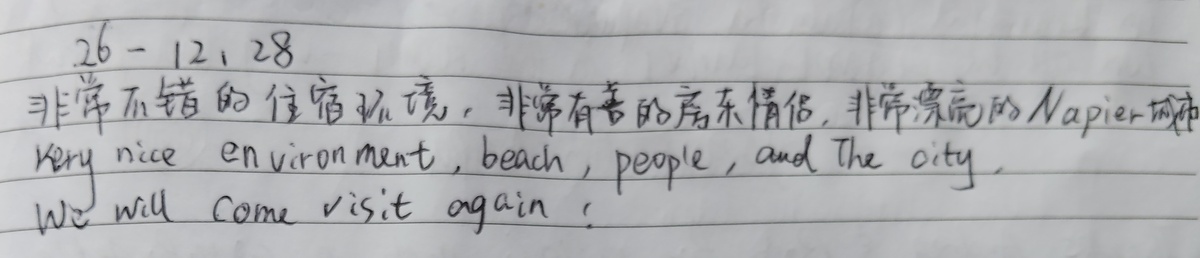 26-12.28
非常不错的住宿环境，非常有善的房东情侣，非常漂亮的Napier城市
very nice environment, beach, people, and The city.
We will come visit again!